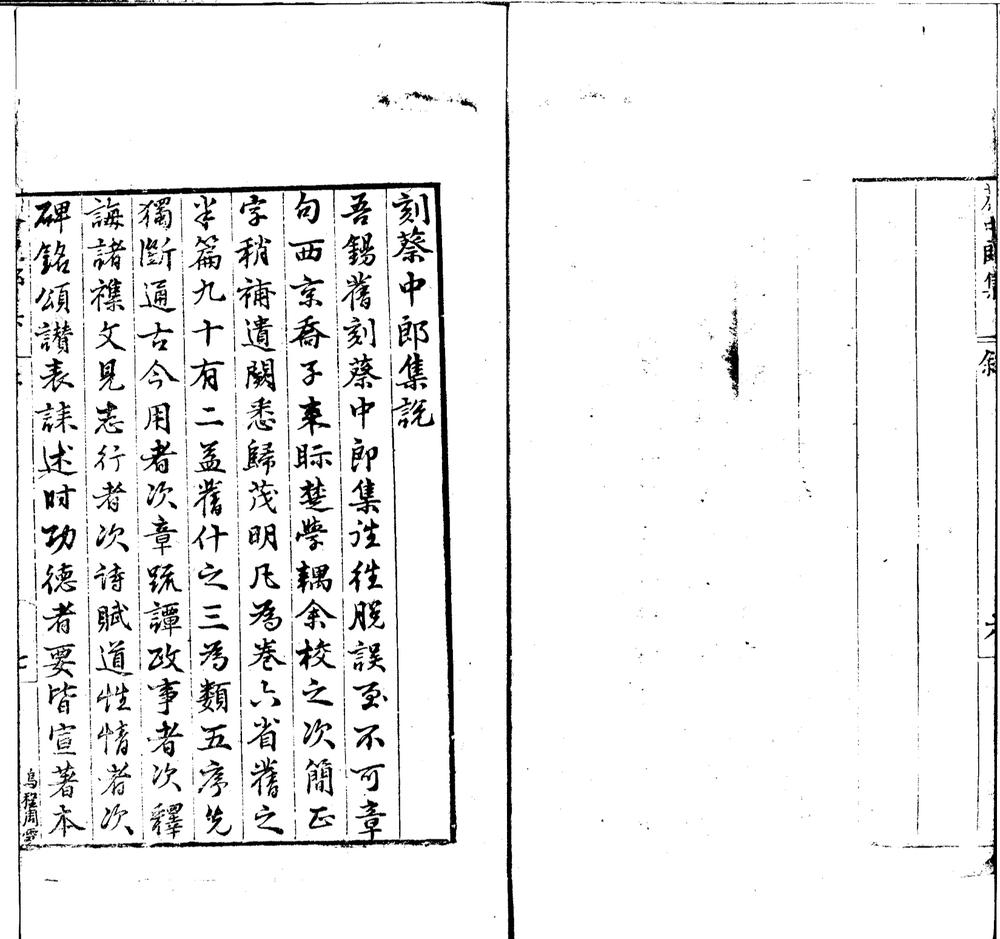 蔡中郎集
敘
刻蔡中郎集説
吾錫舊刻蔡中郎集往往脫誤至不可章
句西京喬子來眎楚學耦余校之次簡正
字稍補遺闕悉歸茂明凡為卷六省舊之
半篇九十有二益舊什之三為類五序先
獨斷通古今用者次章疏譚政事者次釋
誨諸襍文見志行者次詩賦道性情者次
碑銘頌讃表誄述时功德者要皆宣著本
七
烏程周雲